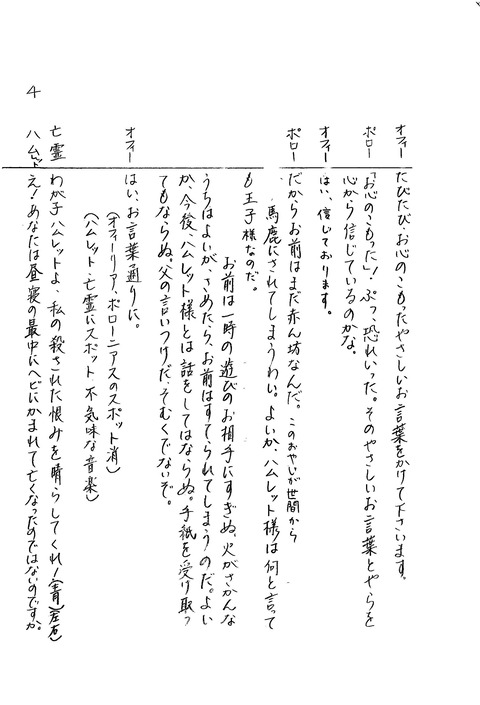 オフィー たびたび、お心のこもったやさしいお言葉をかけて下さいます。
ポロー 「お心のこもった」！ぷっ、恐れいった。そのやさしいお言葉とやらを
心から信じているのかな。
オフィー はい、信じております。
ポロー だからお前はまだ赤ん坊なんだ。このおやじが世間から
馬鹿にされてしまうわい。よいか、ハムレット様は何と言って
も王子様なのだ。
お前は一時の遊びのお相手にすぎぬ。火がさかんな
うちはよいが、さめたら、お前はすてられてしまうのだ。よい
か、今後、ハムレット様とは話をしてはならぬ。手紙を受け取っ
てもならぬ。父の言いつけだ、そむくでないぞ。
オフィー はい、お言葉通りに。
（オフィーリア、ポローニアスのスポット消）
（ハムレット・亡霊にスポット 不気味な音楽）
亡霊 わが子ハムレットよ、私の殺された恨みを晴らしてくれ！（青）（左右）
ハムレット え！あなたは昼寝の最中にヘビにかまれて亡くなったのではないのですか。
4